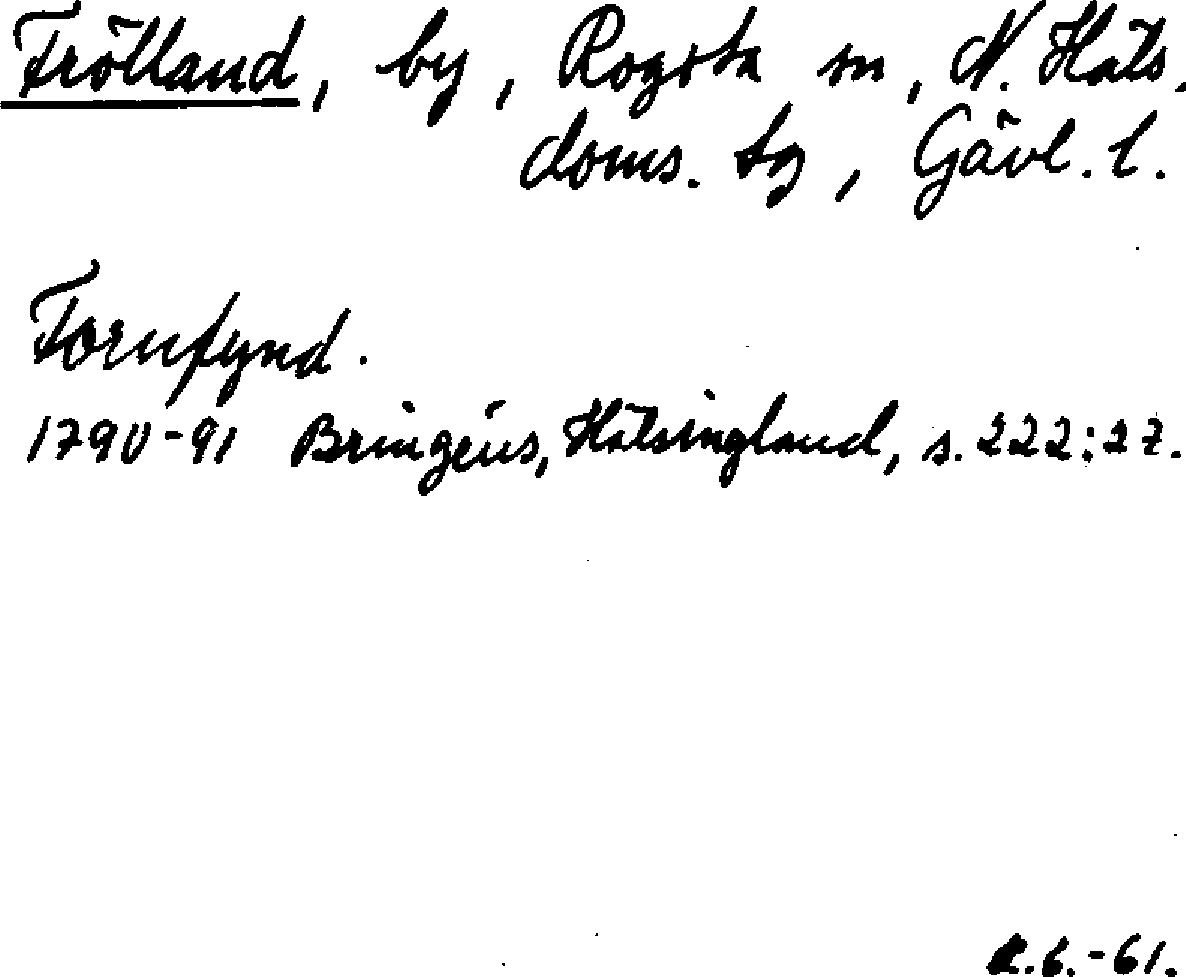 Frölland, by, Rogsta sn, N. Häls.
doms. sg, Gävl. l.
Fornfynd.
1790-91 Bringéus, Hälsingland, s. 222:27.
R.6.-61.